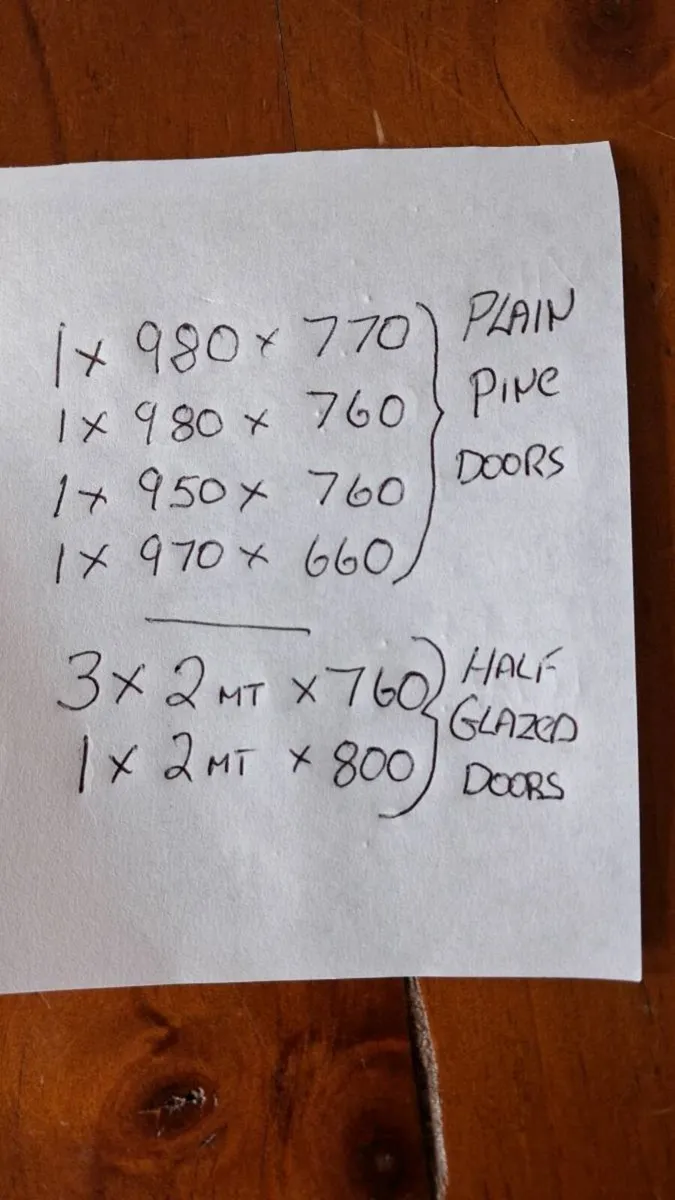 1 x 980 x 770
1 x 980 x 760
1 x 950 x 760
1 x 970 x 660
PLAIN
PINE
DOORS
3 x 2 MT x 760
1 x 2 MT x 800
HALF
GLAZED
DOORS